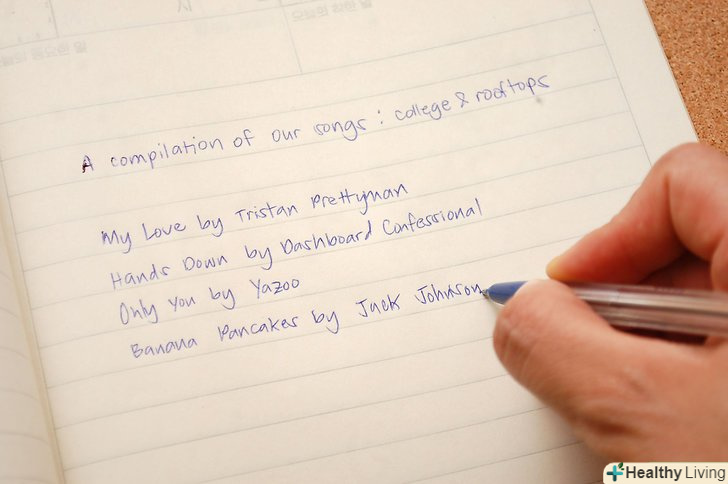 A compilation of our songs : college & rooftops
My Love by Tristan Prettyman
Hands Down by Dashboard Confessional
Only You by Yazoo
Banana Pancakes by Jack Johnson
Healthy Living